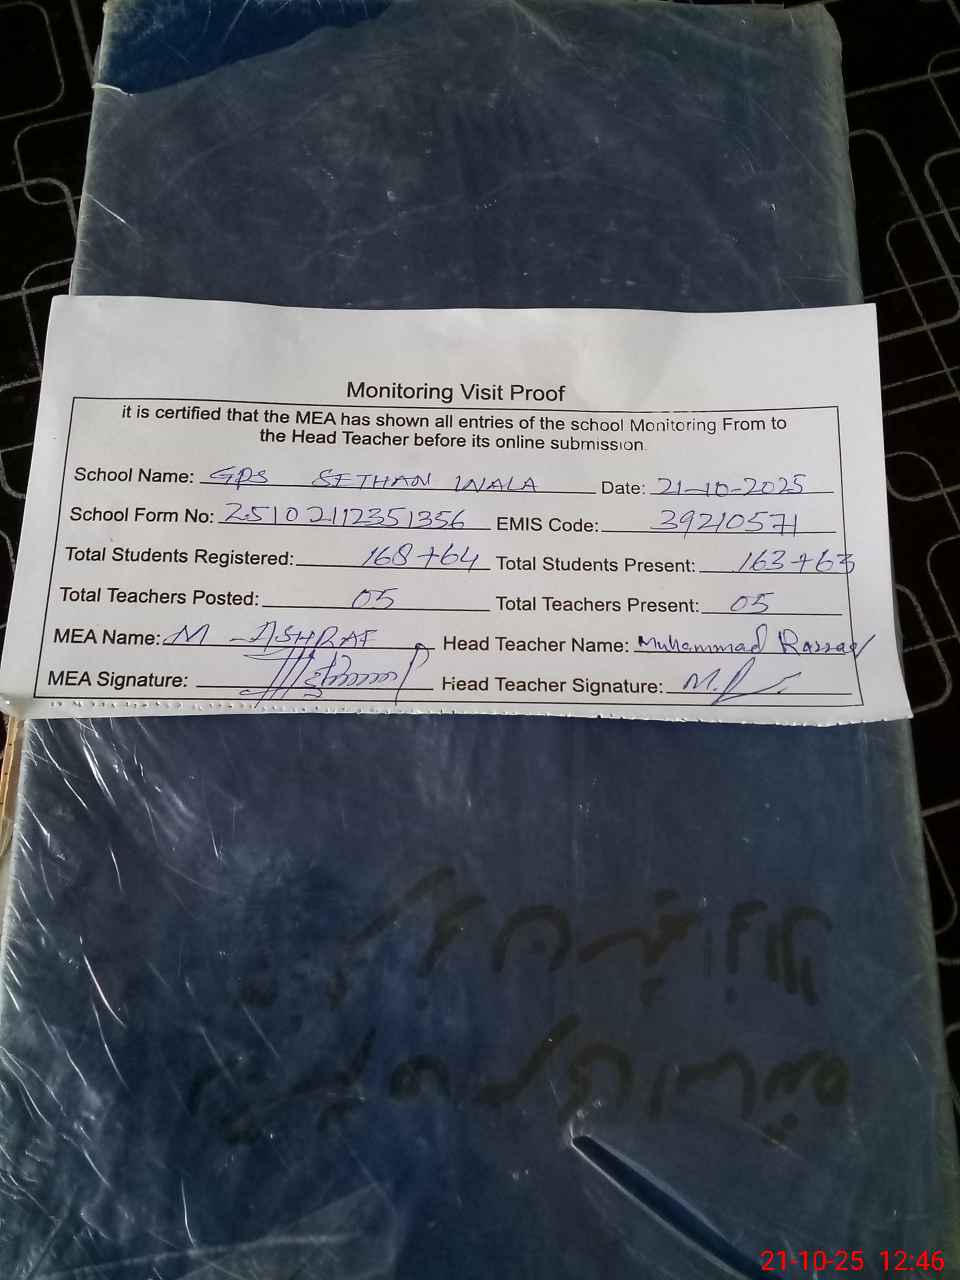 Monitoring Visit Proof
it is certified that the MEA has shown all entries of the school Monitoring From to
the Head Teacher before its online submission.
School Name: GPS SETHAN WALA Date: 21-10-2025
School Form No: 25102112351356 EMIS Code: 39210571
Total Students Registered: 168+64 Total Students Present: 163+63
Total Teachers Posted: 05 Total Teachers Present: 05
MEA Name: M-ASHRAF Head Teacher Name: Muhammad
MEA Signature: Head Teacher Signature:
21-10-25 12:46